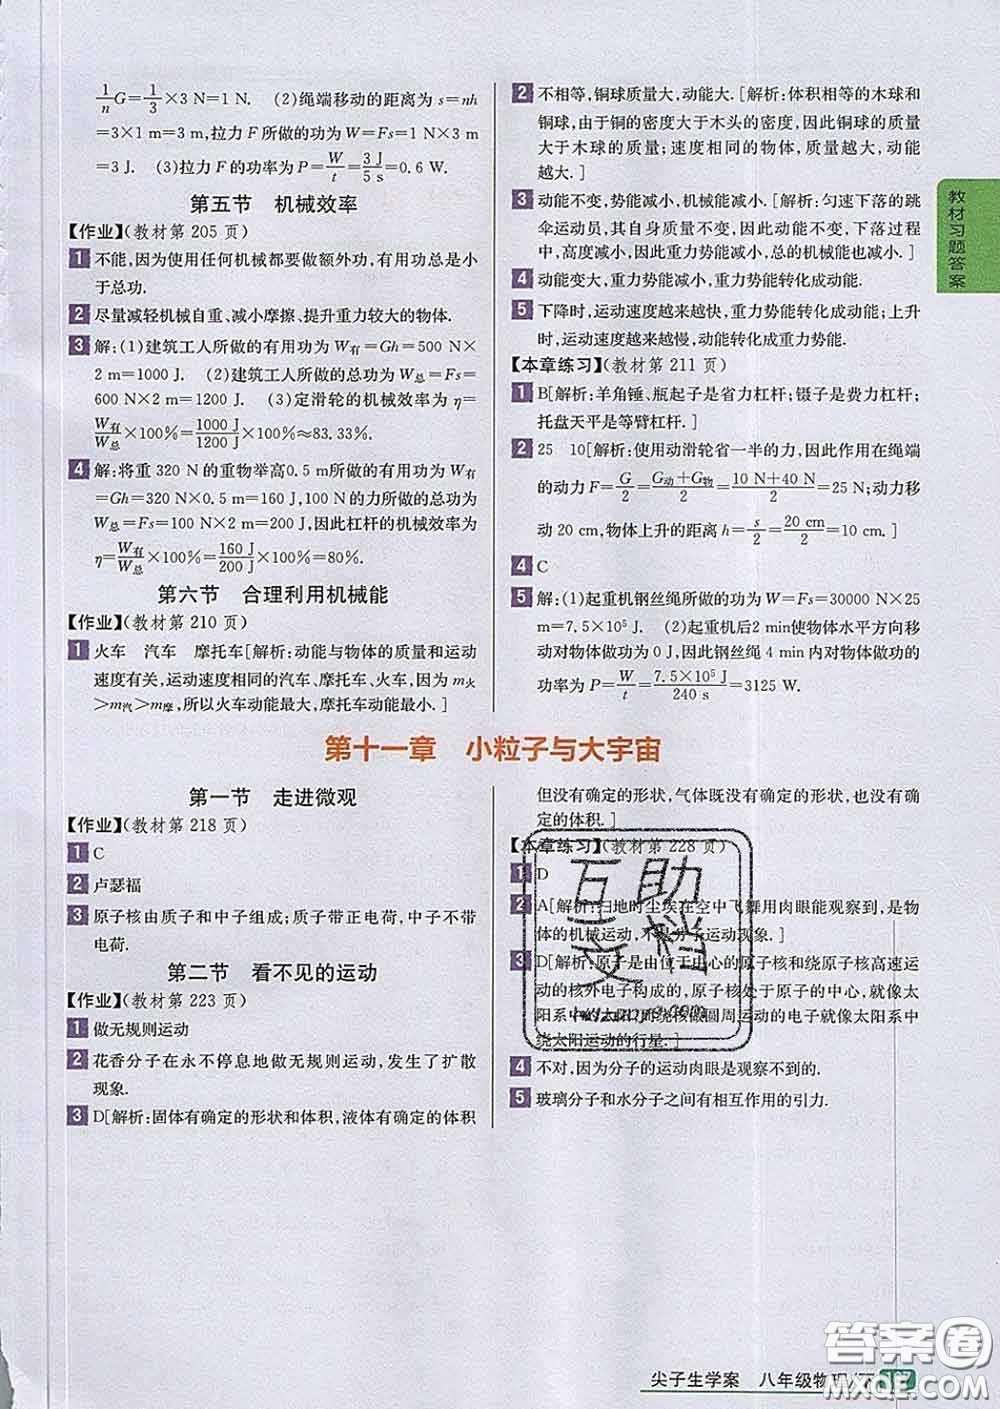 1/n G=1/3×3 N=1 N. (2)绳端移动的距离为 s=nh
=3×1 m=3 m,拉力 F 所做的功为 W=Fs=1 N×3 m
=3 J. (3)拉力 F 的功率为 P=W/t=3 J/5 s=0.6 W.
第五节 机械效率
【作业】(教材第 205 页)
1 不能,因为使用任何机械都要做额外功,有用功总是小
于总功.
2 尽量减轻机械自重、减小摩擦、提升重力较大的物体.
3 解:(1)建筑工人所做的有用功为 W有=Gh=500 N×
2 m=1000 J. (2)建筑工人所做的总功为 W总=Fs=
600 N×2 m=1200 J. (3)定滑轮的机械效率为 η=
W有/W总×100%=1000 J/1200 J×100%≈83.33%.
4 解:将重 320 N 的重物举高0.5 m所做的有用功为 W有
=Gh=320 N×0.5 m=160 J,100 N 的力所做的总功为
W总=Fs=100 N×2 m=200 J,因此杠杆的机械效率为
η=W有/W总×100%=160 J/200 J×100%=80%.
第六节 合理利用机械能
【作业】(教材第 210 页)
1 火车 汽车 摩托车[解析:动能与物体的质量和运动
速度有关,运动速度相同的汽车、摩托车、火车,因为 m火
>m汽>m摩,所以火车动能最大,摩托车动能最小.]
2 不相等,铜球质量大,动能大.[解析:体积相等的木球和
铜球,由于铜的密度大于木头的密度,因此铜球的质量
大于木球的质量;速度相同的物体,质量越大,动能
越大.]
3 动能不变,势能减小,机械能减小.[解析:匀速下落的跳
伞运动员,其自身质量不变,因此动能不变,下落过程
中,高度减小,因此重力势能减小,总的机械能也减小.]
4 动能变大,重力势能减小,重力势能转化成动能.
5 下降时,运动速度越来越快,重力势能转化成动能;上升
时,运动速度越来越慢,动能转化成重力势能.
【本章练习】(教材第 211 页)
1 B[解析:羊角锤、瓶起子是省力杠杆;镊子是费力杠杆;
托盘天平是等臂杠杆.]
2 25 10[解析:使用动滑轮省一半的力,因此作用在绳端
的动力 F=G/2=G动+G物/2=10 N+40 N/2=25 N;动力移
动 20 cm,物体上升的距离 h=s/2=20 cm/2=10 cm.]
4 C
5 解:(1)起重机钢丝绳所做的功为 W=Fs=30000 N×25
m=7.5×10⁵ J. (2)起重机后2 min使物体水平方向移
动对物体做功为 0 J,因此钢丝绳 4 min 内对物体做功的
功率为 P=W/t=7.5×10⁵ J/240 s=3125 W.
教材习题答案
第十一章 小粒子与大宇宙
第一节 走进微观
【作业】(教材第 218 页)
1 C
2 卢瑟福
3 原子核由质子和中子组成;质子带正电荷,中子不带
电荷.
第二节 看不见的运动
【作业】(教材第 223 页)
1 做无规则运动
2 花香分子在永不停息地做无规则运动,发生了扩散
现象.
3 D[解析:固体有确定的形状和体积,液体有确定的体积
但没有确定的形状,气体既没有确定的形状,也没有确
定的体积.]
【本章练习】(教材第 228 页)
1 D
2 A[解析:扫地时尘埃在空中飞舞用肉眼能观察到,是物
体的机械运动,不是分子运动现象.]
3 D[解析:原子是由位于中心的原子核和绕原子核高速运
动的核外电子构成的,原子核处于原子的中心,就像太
阳系中的太阳,而绕核做圆周运动的电子就像太阳系中
绕太阳运动的行星.]
4 不对,因为分子的运动肉眼是观察不到的.
5 玻璃分子和水分子之间有相互作用的引力.
互助
文档
尖子生学案 八年级物理
答案圈
MXQE.COM